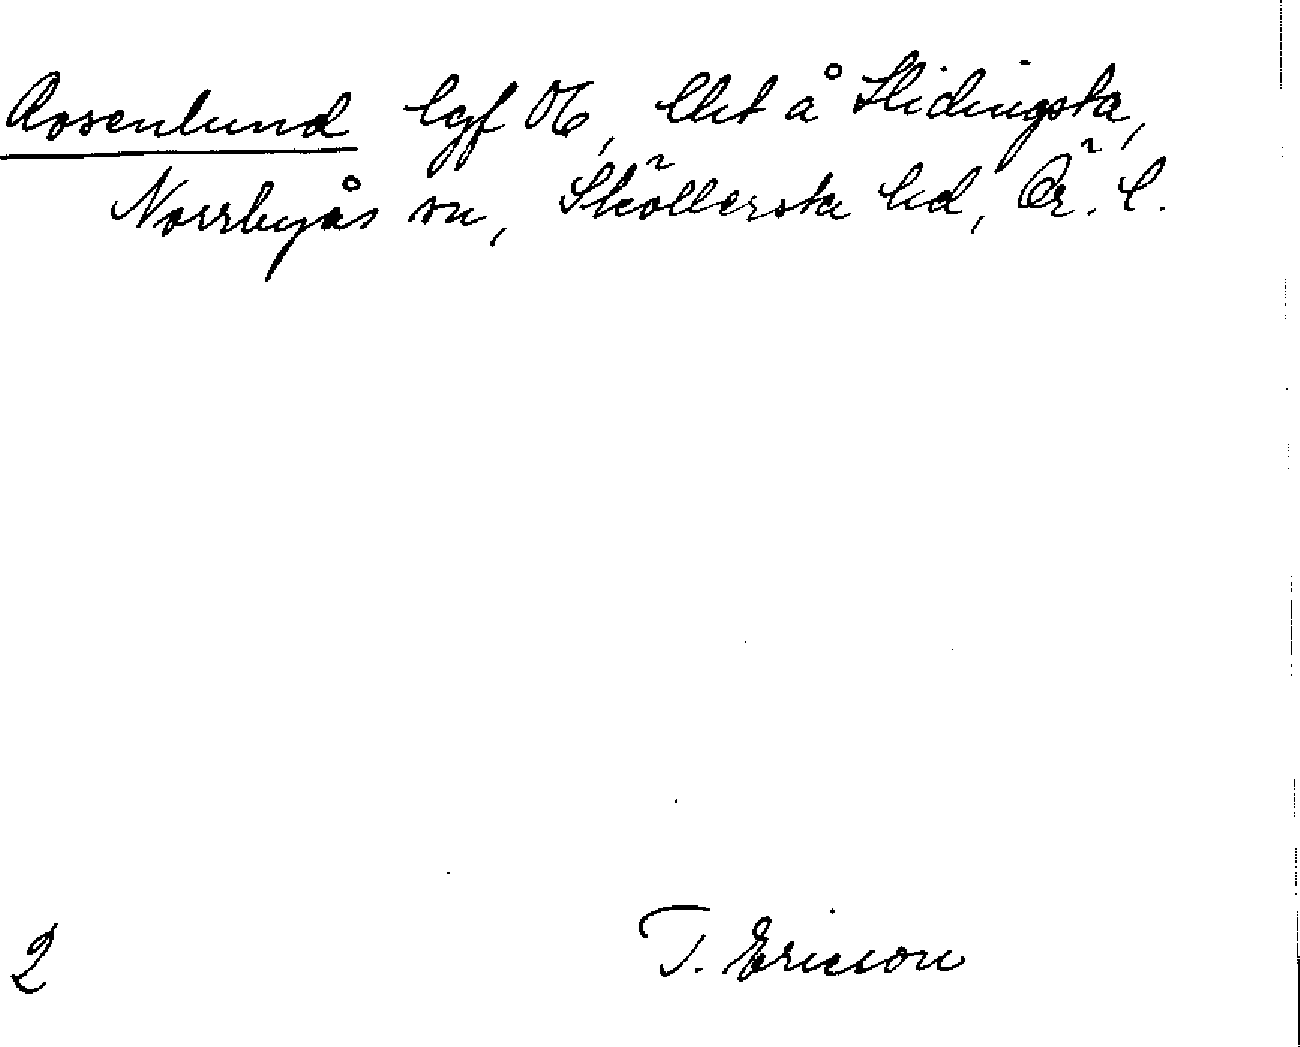 Rosenlund lgf 06, lht å Skidingsta,
Norrbyås sn, Sköllersta hd, Ör. l.
2
T. Ericson